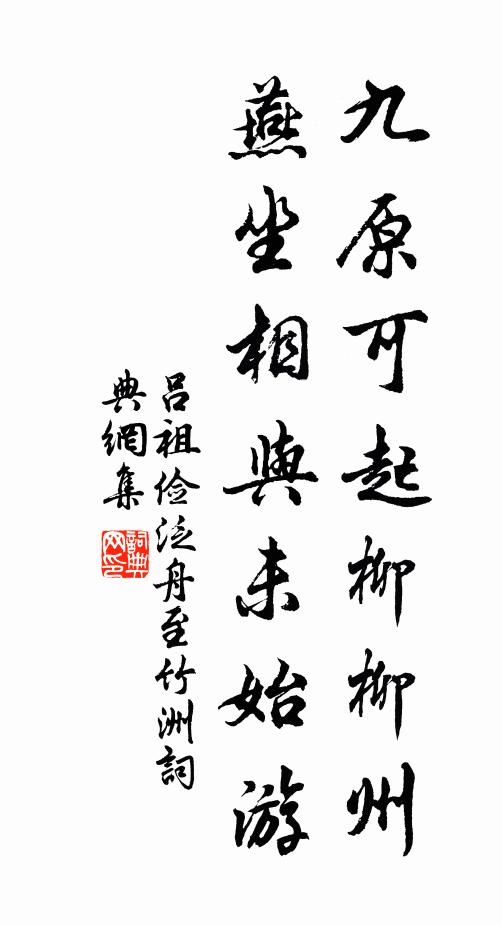 九原可起柳柳州
燕坐相與未始游
吕祖俭泛舟至竹洲詞
典網集
詞典
网印